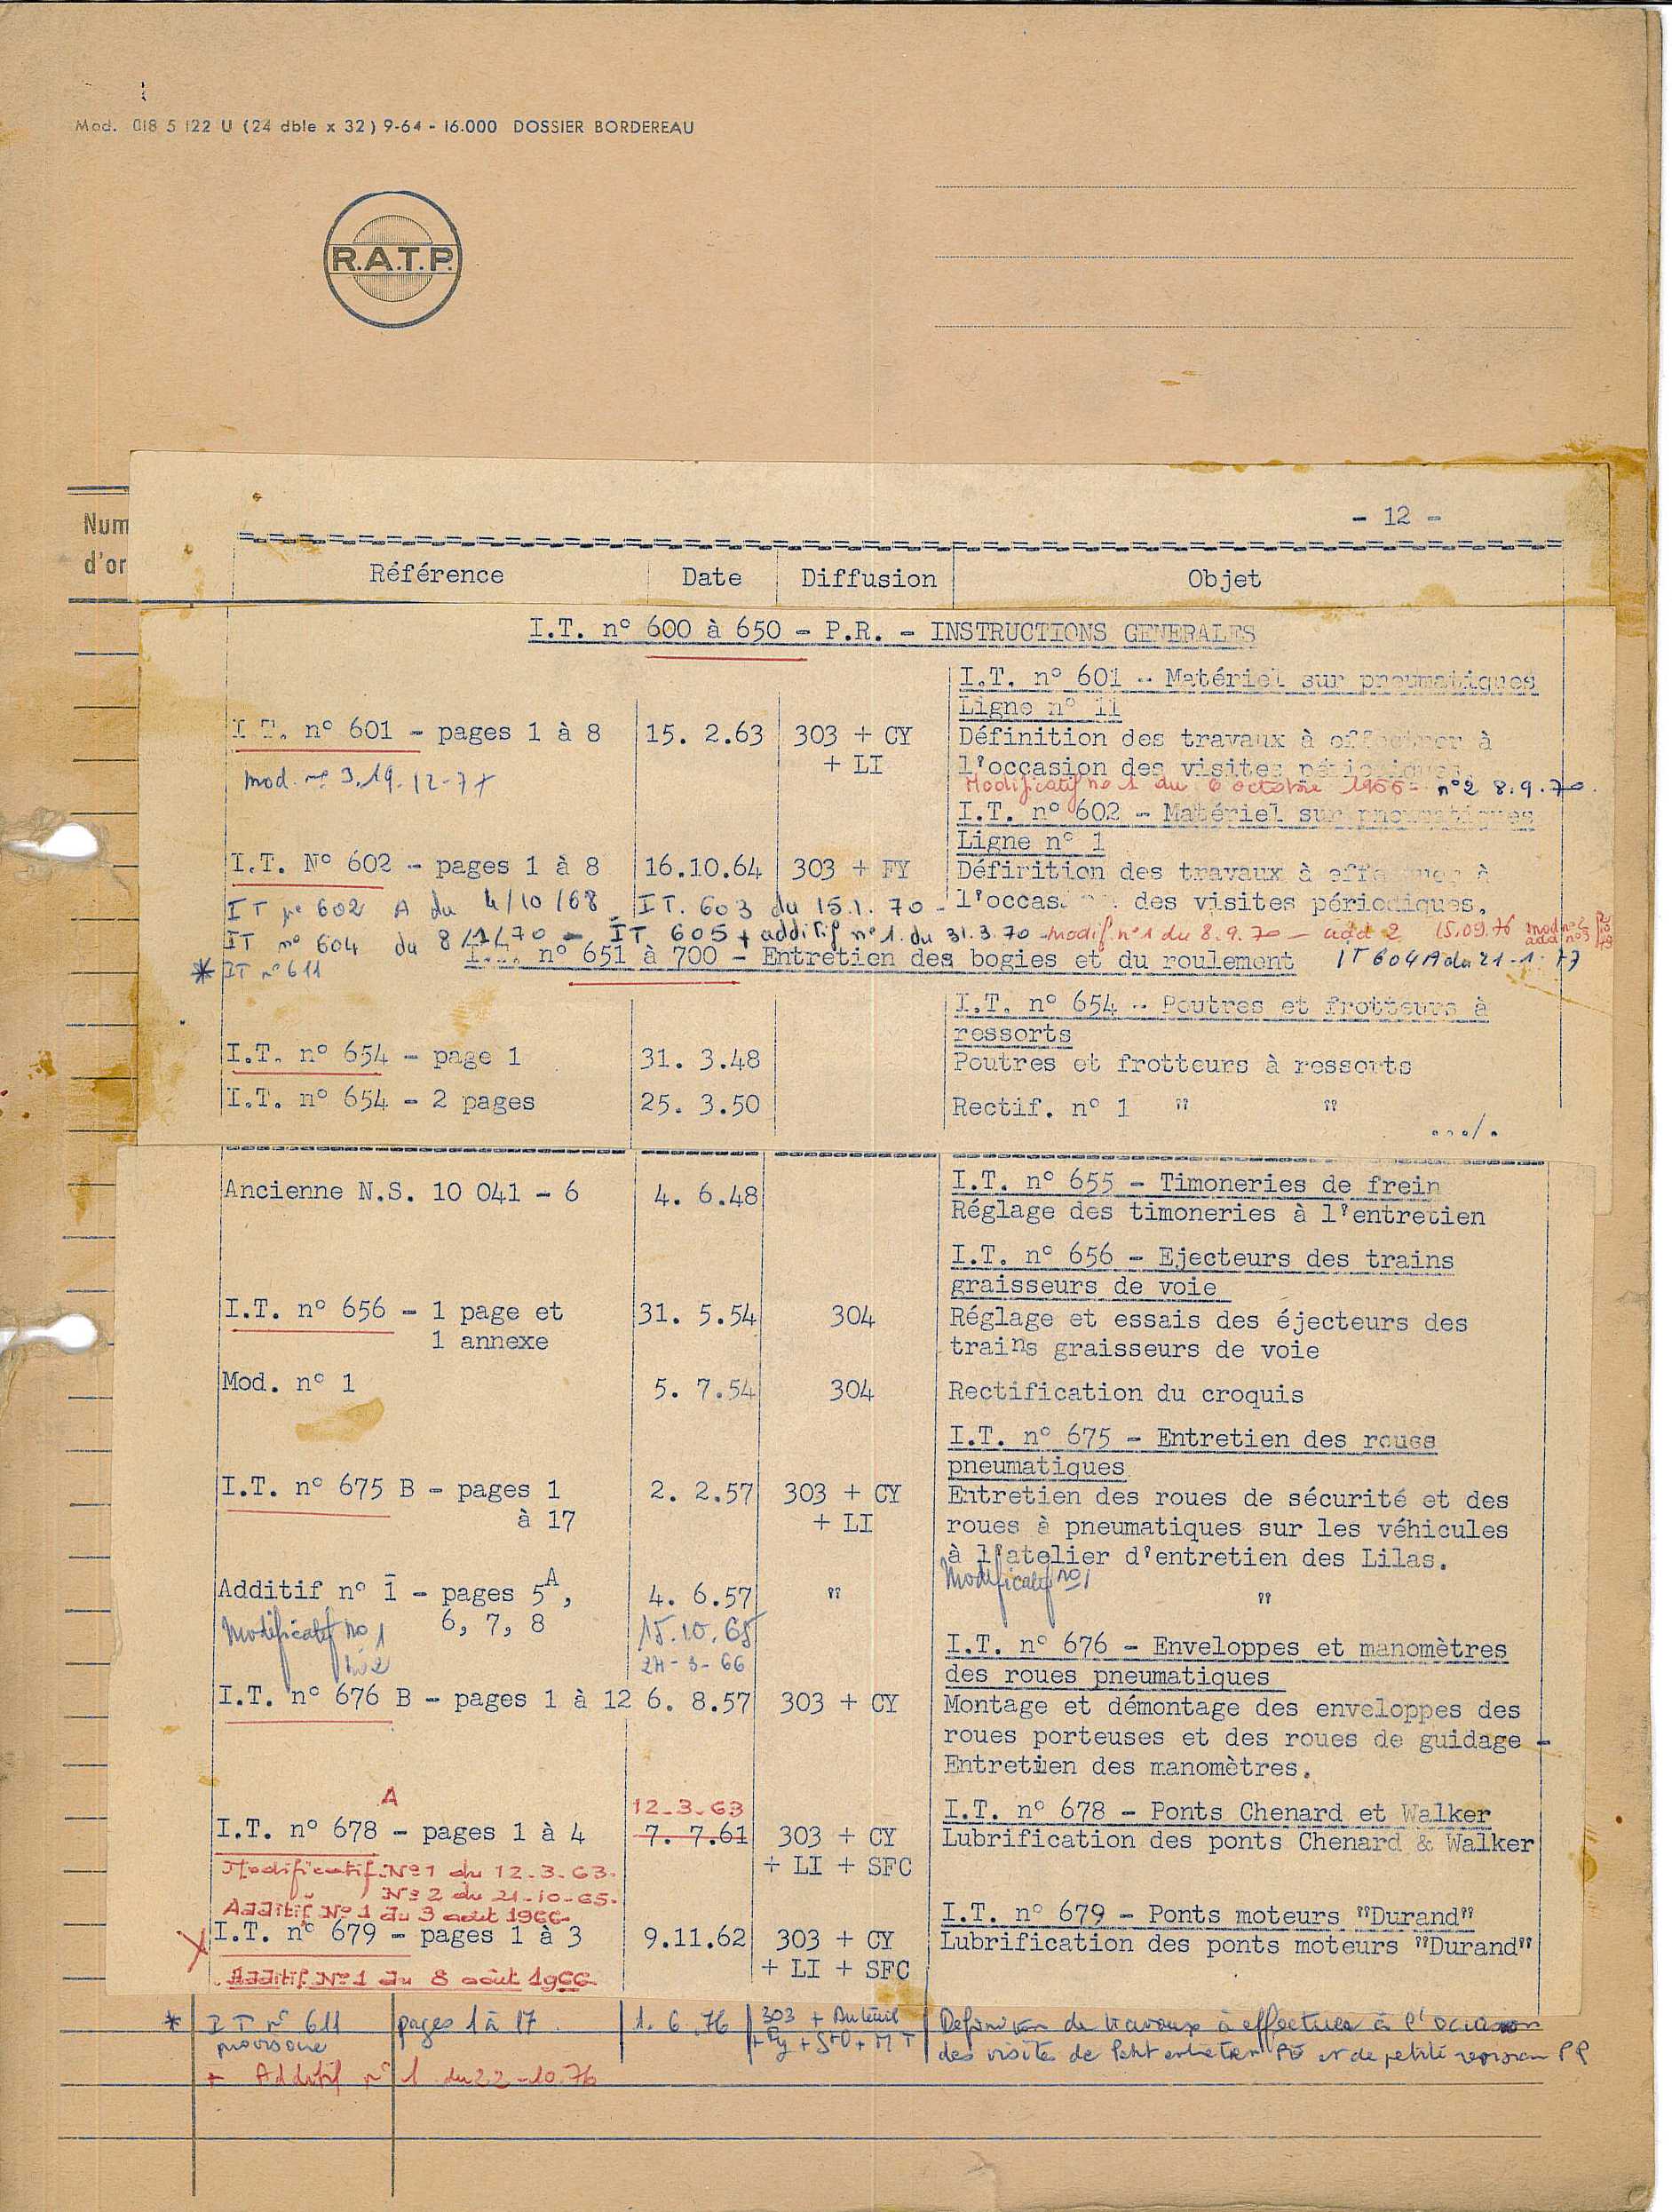 Mod. 018 5 122 U (24 dble x 32) 9-64 - 16.000 DOSSIER BORDEREAU
R.A.T.P.
- 12 -
Num
d'or
Référence Date Diffusion Objet
I.T. n° 600 à 650 - P.R. - INSTRUCTIONS GENERALES
I.T. n° 601 - Matériel sur pneumatiques
Ligne n° 11
I.T. n° 601 - pages 1 à 8 15. 2.63 303 + CY Définition des travaux à effectuer à
+ LI l'occasion des visites périodiques.
mod. n° 3. 19-12-77 Modificatif n° 1 du 6 octobre 1966 - n°2 8.9.70.
I.T. n° 602 - Matériel sur pneumatiques
Ligne n° 1
I.T. N° 602 - pages 1 à 8 16.10.64 303 + FY Définition des travaux à effectuer à
l'occasion des visites périodiques.
IT n° 602 A du 4/10/68 IT. 603 du 15.1.70 -
IT n° 604 du 8/1/70 - IT 605 + additif n° 1. du 31.3.70 - modif n° 1 du 8.9.70 - add 2 15.09.76 mod n°2
add n°3
* IT n° 611 I.T. n° 651 à 700 - Entretien des bogies et du roulement IT 604 A du 21-1-77
I.T. n° 654 - Poutres et frotteurs à
ressorts
I.T. n° 654 - page 1 31. 3.48 Poutres et frotteurs à ressorts
I.T. n° 654 - 2 pages 25. 3.50 Rectif. n° 1 " "
.../.
Ancienne N.S. 10 041 - 6 4. 6.48 I.T. n° 655 - Timoneries de frein
Réglage des timoneries à l'entretien
I.T. n° 656 - Ejecteurs des trains
graisseurs de voie
I.T. n° 656 - 1 page et 31. 5.54 304 Réglage et essais des éjecteurs des
1 annexe trains graisseurs de voie
Mod. n° 1 5. 7.54 304 Rectification du croquis
I.T. n° 675 - Entretien des roues
pneumatiques
I.T. n° 675 B - pages 1 2. 2.57 303 + CY Entretien des roues de sécurité et des
à 17 + LI roues à pneumatiques sur les véhicules
à l'atelier d'entretien des Lilas.
Modificatif n° 1
Additif n° 1 - pages 5A, 4. 6.57 " "
6, 7, 8
Modificatif no 1 15.10.65
no 2 24-3-66
I.T. n° 676 - Enveloppes et manomètres
des roues pneumatiques
I.T. n° 676 B - pages 1 à 12 6. 8.57 303 + CY Montage et démontage des enveloppes des
roues porteuses et des roues de guidage -
Entretien des manomètres.
A 12-3-63 I.T. n° 678 - Ponts Chenard et Walker
I.T. n° 678 - pages 1 à 4 7. 7.61 303 + CY Lubrification des ponts Chenard & Walker
+ LI + SFC
Modificatif N°1 du 12-3-63.
N° 2 du 21-10-65.
Additif N° 1 du 3 août 1966
I.T. n° 679 - Ponts moteurs "Durand"
X I.T. n° 679 - pages 1 à 3 9.11.62 303 + CY Lubrification des ponts moteurs "Durand"
+ LI + SFC
Additif N° 1 du 8 août 1966
* IT n° 611 pages 1 à 17 1. 6.76 303 + Auteuil Définition de travaux à effectuer à l'occasion
provisoire + Fy + StO + MT des visites de Petit entretien PE et de petite revision PR
+ Additif n° 1 du 22-10-76